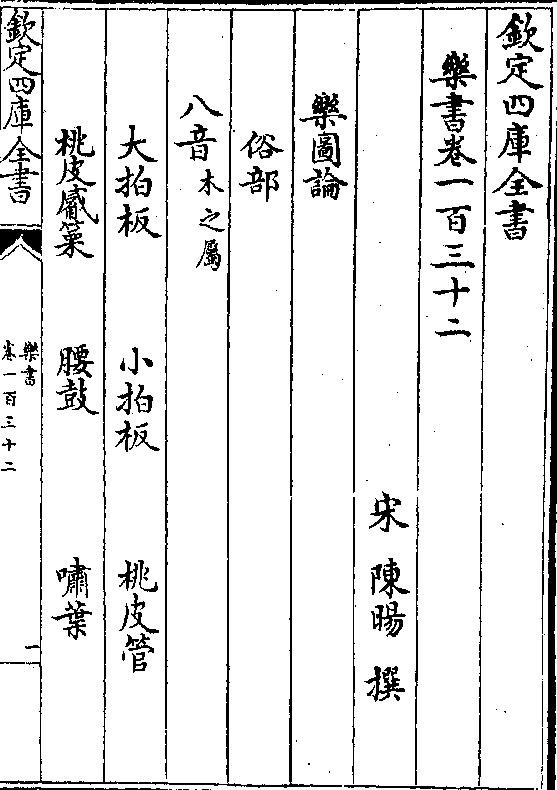 欽定四庫全書
樂書卷一百三十二
宋 陳暘 撰
樂圖論
俗部
八音木之屬
大拍板 小拍板 桃皮管
桃皮觱篥 腰鼓 嘯葉
欽定四庫全書
樂書
卷一百三十二
一